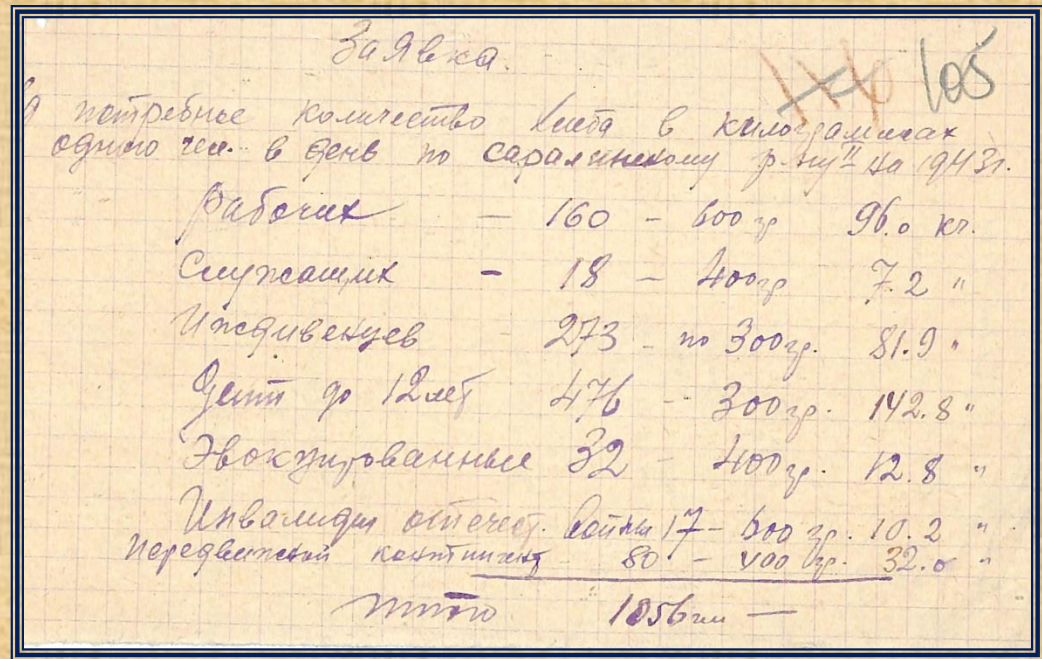 Заявка.
105
потребное количество хлеба в килограммах
одного чел. в день по саралинскому р-ну на 1943г.
Рабочих — 160 — 600 гр 96.0 кг.
Служащих — 18 — 400 гр 7.2 "
Иждивенцев — 273 — по 300 гр. 81.9 "
Дети до 12 лет 476 — 300 гр. 142.8 "
Эвокуированные 32 — 400 гр. 12.8 "
Инвалиды отечест. войны 17 — 600 гр. 10.2 "
Передвижной контингент 80 — 400 гр. 32.0 "
Итого 1056 чел —